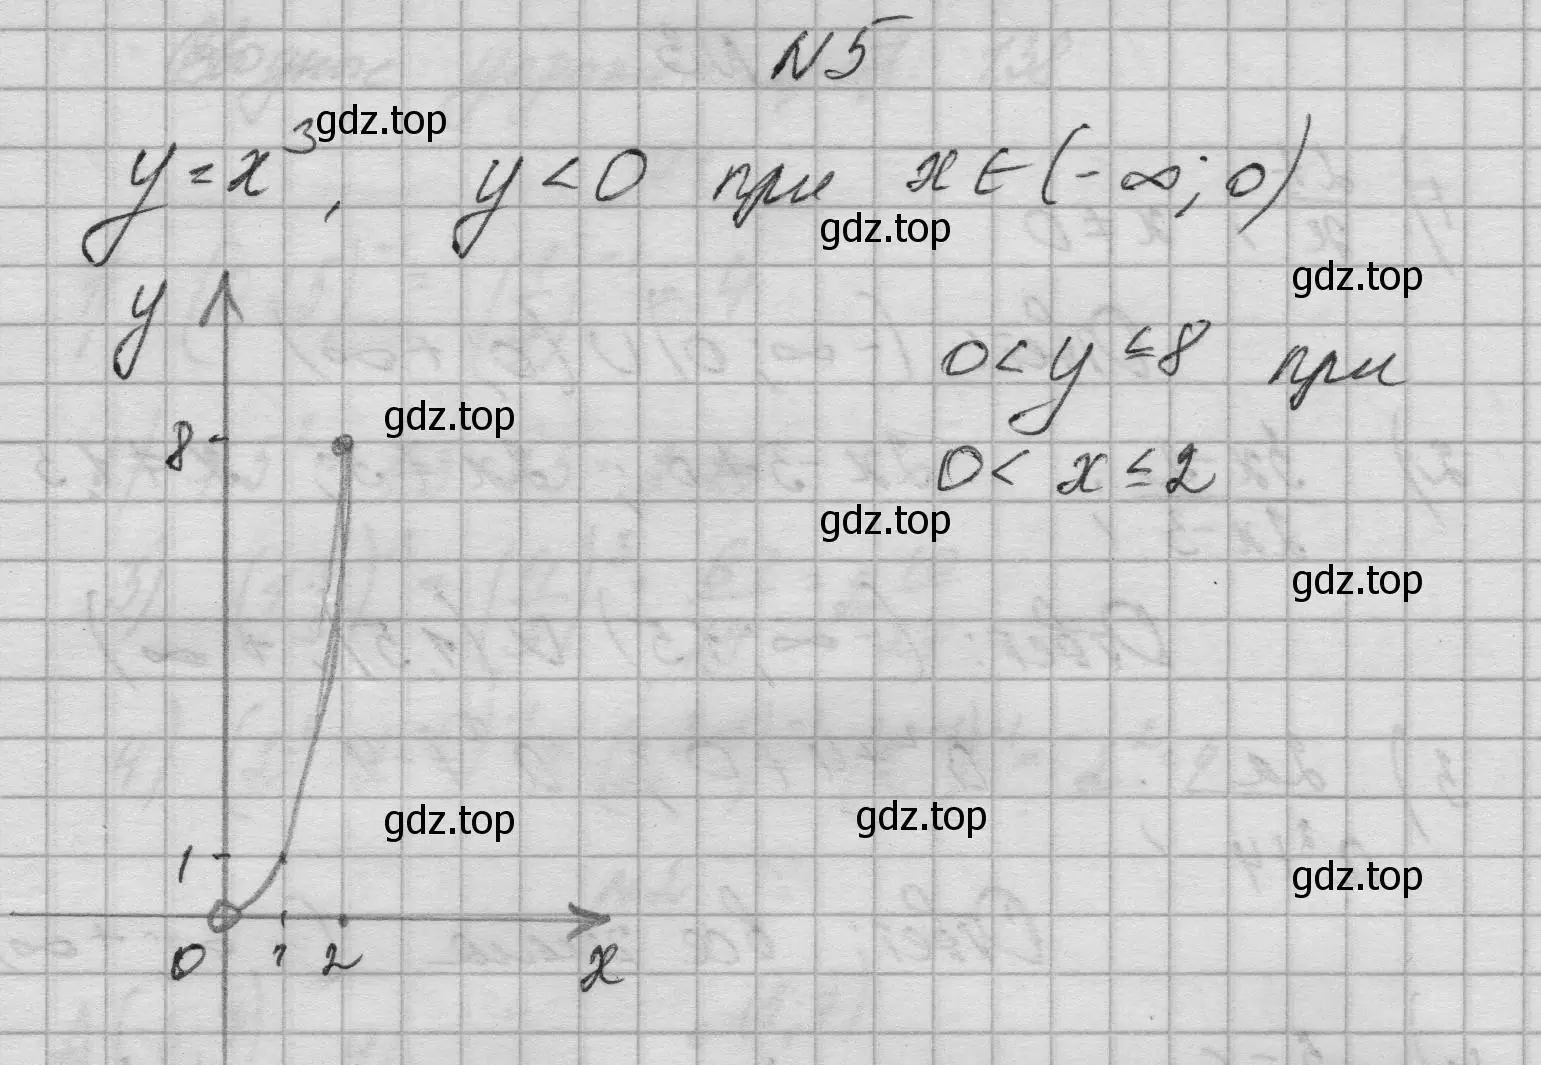 N5
y = x³, y < 0 при x ∈ (-∞; 0)
0 < y ≤ 8 при
0 < x ≤ 2
y
8
1
0 1 2 x
gdz.top
gdz.top
gdz.top
gdz.top
gdz.top
gdz.top
gdz.top
gdz.top
gdz.top